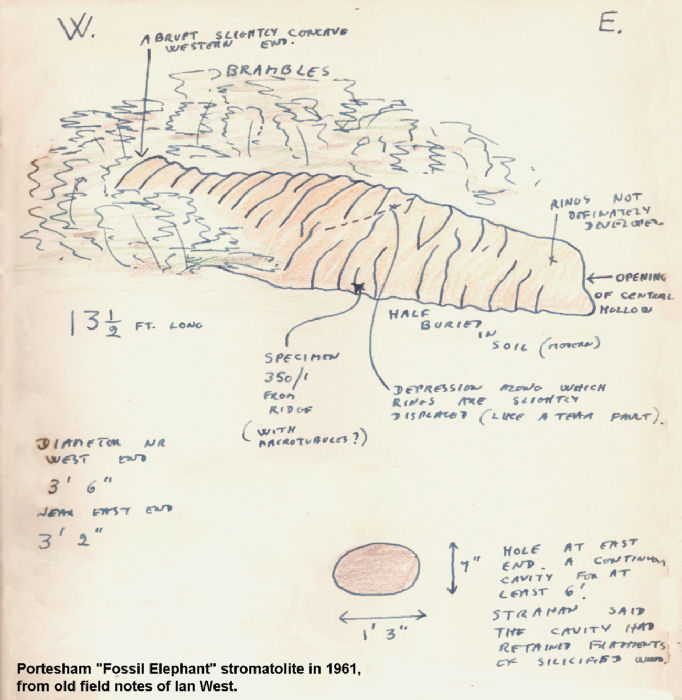 W.
E.
ABRUPT SLIGHTLY CONCAVE
WESTERN END.
BRAMBLES
RINGS NOT
DEFINATELY
DEVELOPED
OPENING
OF CENTRAL
HOLLOW
13 1/2 FT. LONG
HALF
BURIED
IN
SOIL (MODERN)
SPECIMEN
350/1
FROM
RIDGE
(WITH
MACROTUBULES?)
DEPRESSION ALONG WHICH
RINGS ARE SLIGHTLY
DISPLACED (LIKE A TEAR FAULT).
DIAMETER NR
WEST END
3' 6"
NEAR EAST END
3' 2"
HOLE AT EAST
END. A CONTINUOUS
CAVITY FOR AT
LEAST 6'.
STRAHAN SAID
THE CAVITY HAD
RETAINED FRAGMENTS
OF SILICIFIED WOOD.
1' 3"
Portesham "Fossil Elephant" stromatolite in 1961,
from old field notes of Ian West.